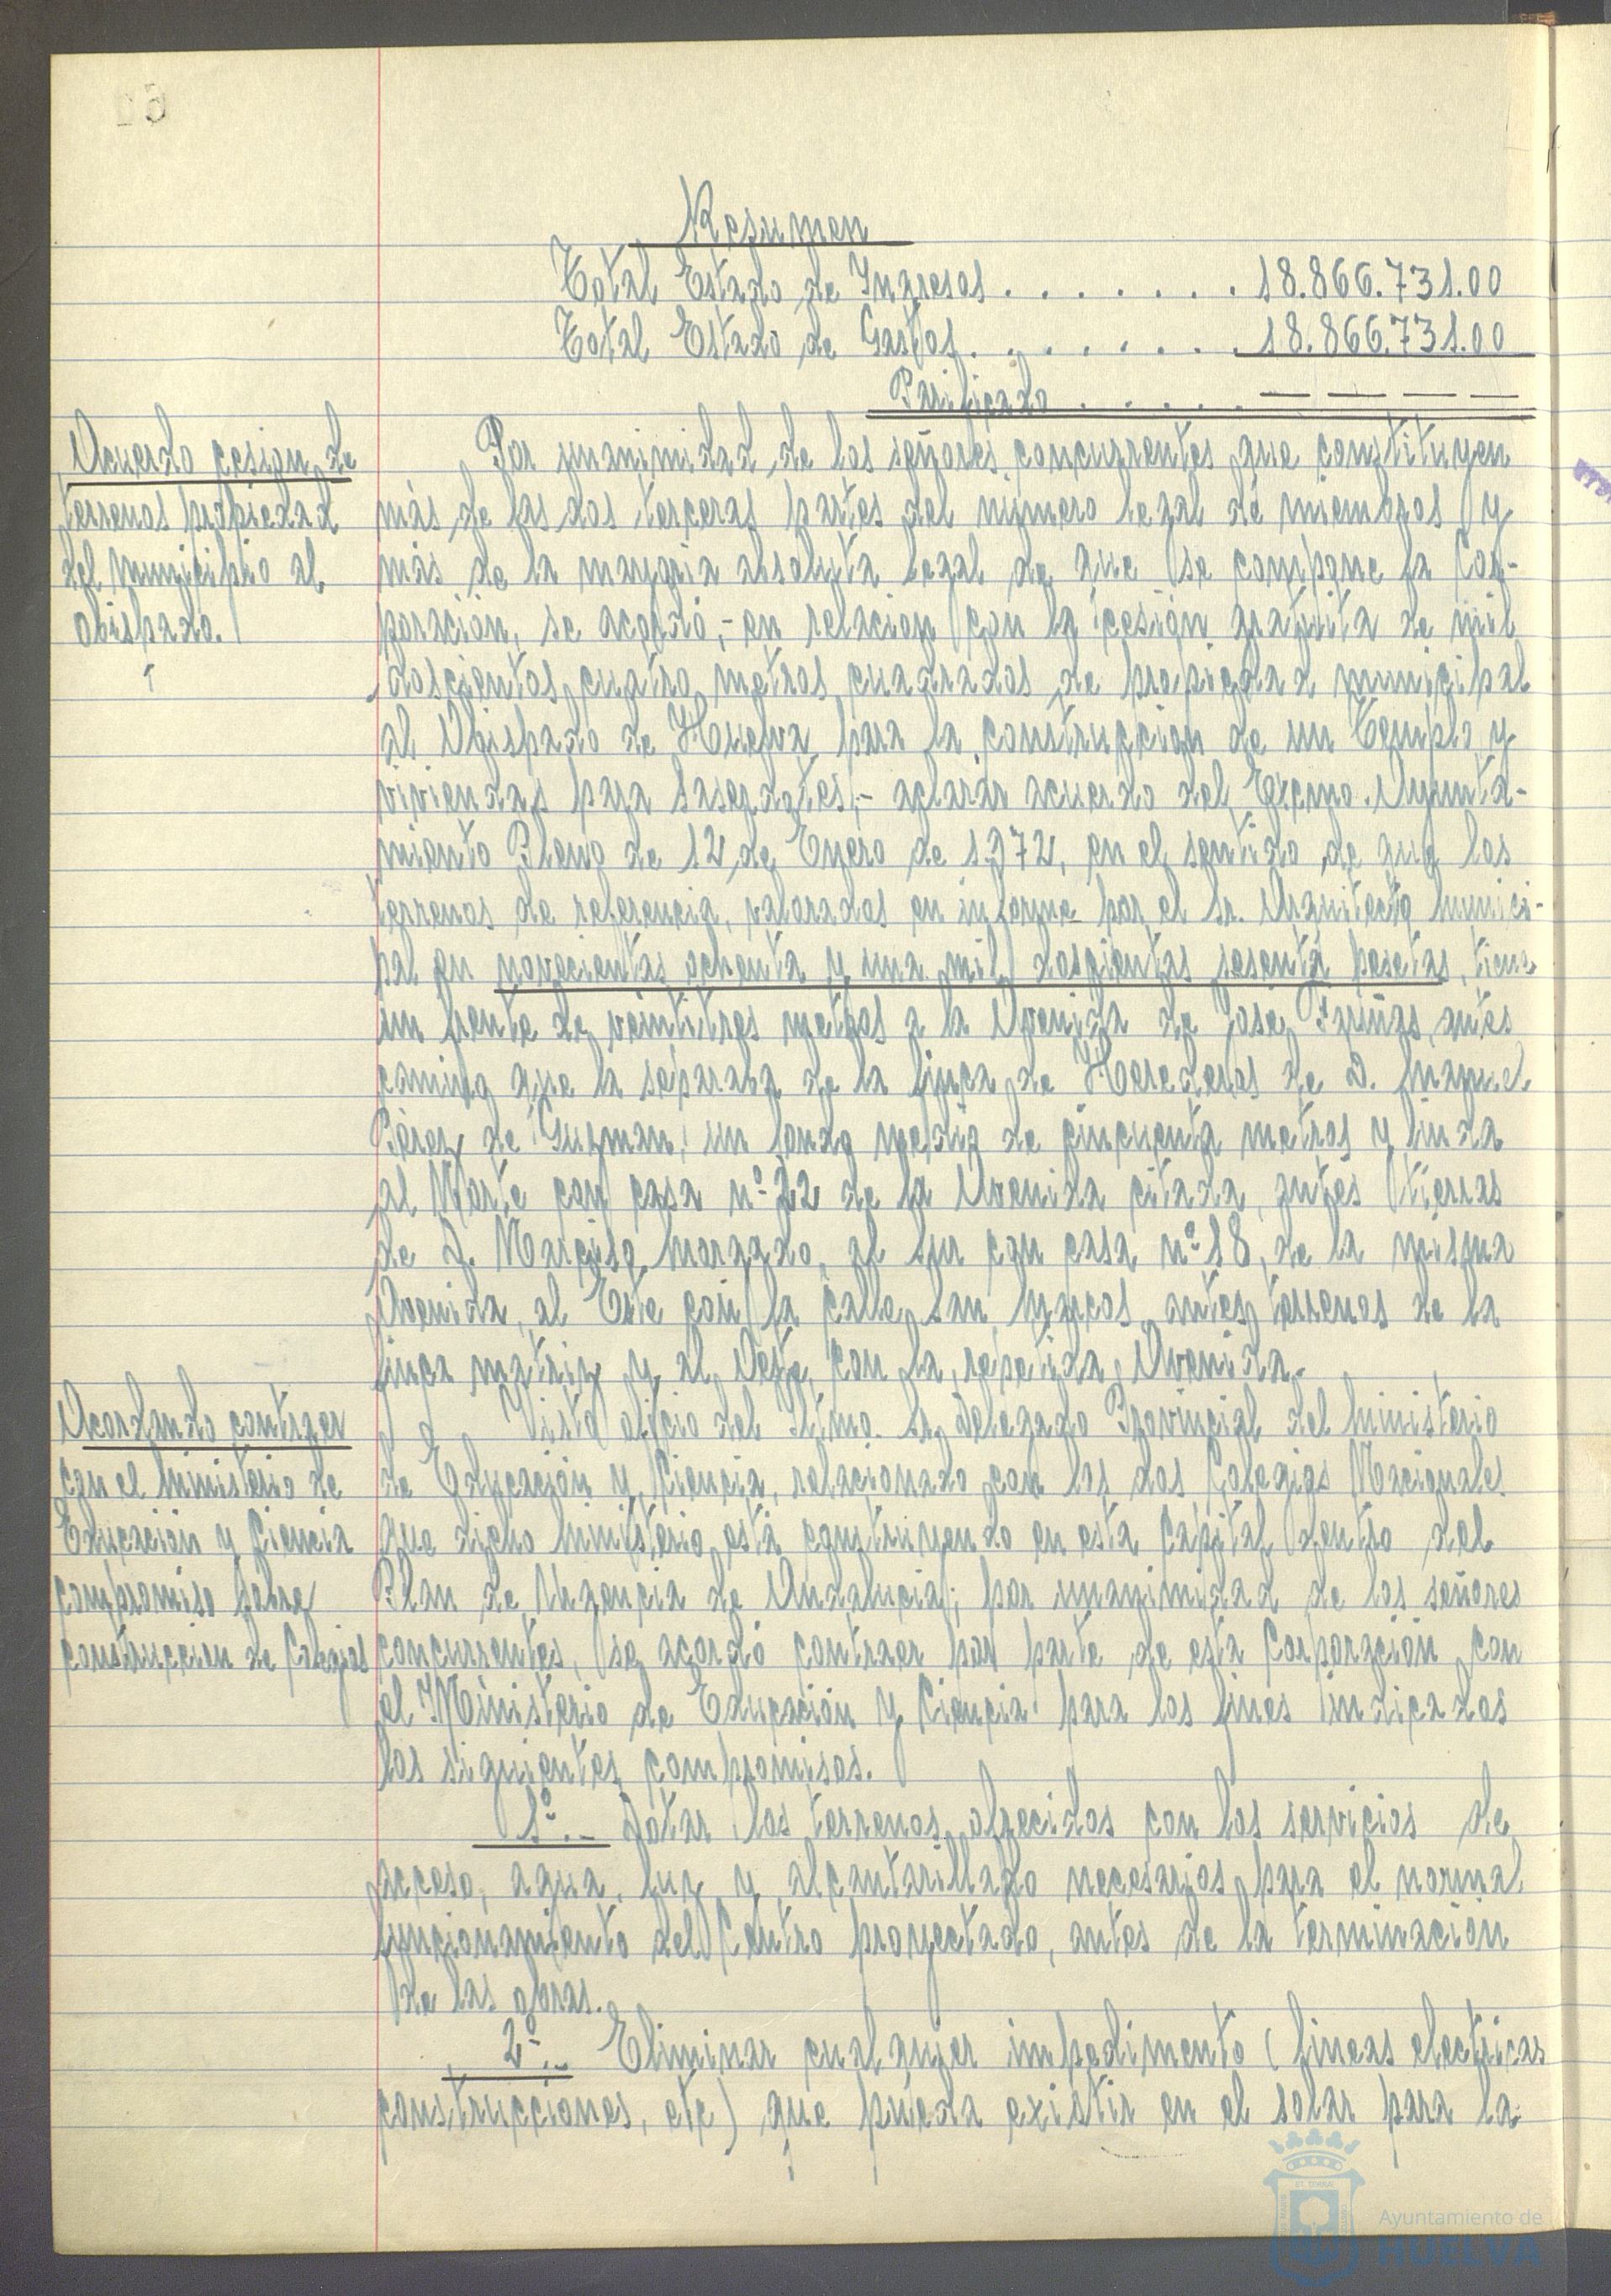 Resumen
Total Estado de Ingresos . . . . . . . . 18.866.731.00
Total Estado de Gastos . . . . . . . . 18.866.731.00
Parificado . . . . . — — — —
Acuerdo cesion de
terrenos propiedad
del Municipio al
Obispado.
Por unanimidad de los señores concurrentes que constituyen
más de las dos terceras partes del número legal de miembros y
más de la mayoria absoluta legal de que se compone la Cor-
poración, se acordó,- en relacion con la cesión gratuita de mil
doscientos cuatro metros cuadrados de propiedad municipal
al Obispado de Huelva para la construccion de un Templo y
viviendas para Saserdotes,- aclarar acuerdo del Excmo. Ayunta-
miento Pleno de 12 de Enero de 1.972, en el sentido de que los
terrenos de referencia, valorados en informe por el Sr. Arquitecto Munici-
pal en novecientas ochenta y una mil doscientas sesenta pesetas, tiene
un frente de veintitres metros a la Avenida de Jose Fariñas, antes
camino que la separaba de la finca de Herederos de D. Manuel
Pérez de Guzman, un fondo medio de cincuenta metros y linda
al Norte con casa nº 22 de la Avenida citada, antes tierras
de D. Narciso Morgado, al Sur con casa nº 18, de la misma
Avenida, al Este con la calle San Marcos, antes terrenos de la
finca matriz y al Oeste con la repetida Avenida.
Acordando contraer
con el Ministerio de
Educación y Ciencia
compromiso sobre
construccion de Colegios
Visto oficio del Iltmo. Sr. Delegado Provincial del Ministerio
de Educación y Ciencia, relacionado con los dos Colegios Nacionales
que dicho Ministerio está construyendo en esta Capital dentro del
Plan de Urgencia de Andalucia; por unanimidad de los señores
concurrentes, se acordó contraer por parte de esta Corporación con
el Ministerio de Educación y Ciencia para los fines indicados
los siguientes compromisos.
1º.- Dotar los terrenos ofrecidos con los servicios de
acceso, agua, luz y alcantarillado necesarios para el normal
funcionamiento del Centro proyectado, antes de la terminación
de las obras.
2º.- Eliminar cualquier impedimento (lineas electricas
construcciones, etc) que pueda existir en el solar para la
Ayuntamiento de
HUELVA